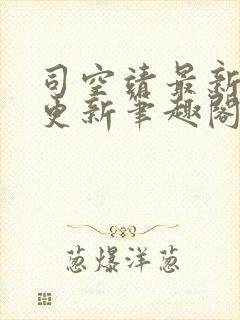 司空靖最新
更新筆趣閣
葱爆洋葱